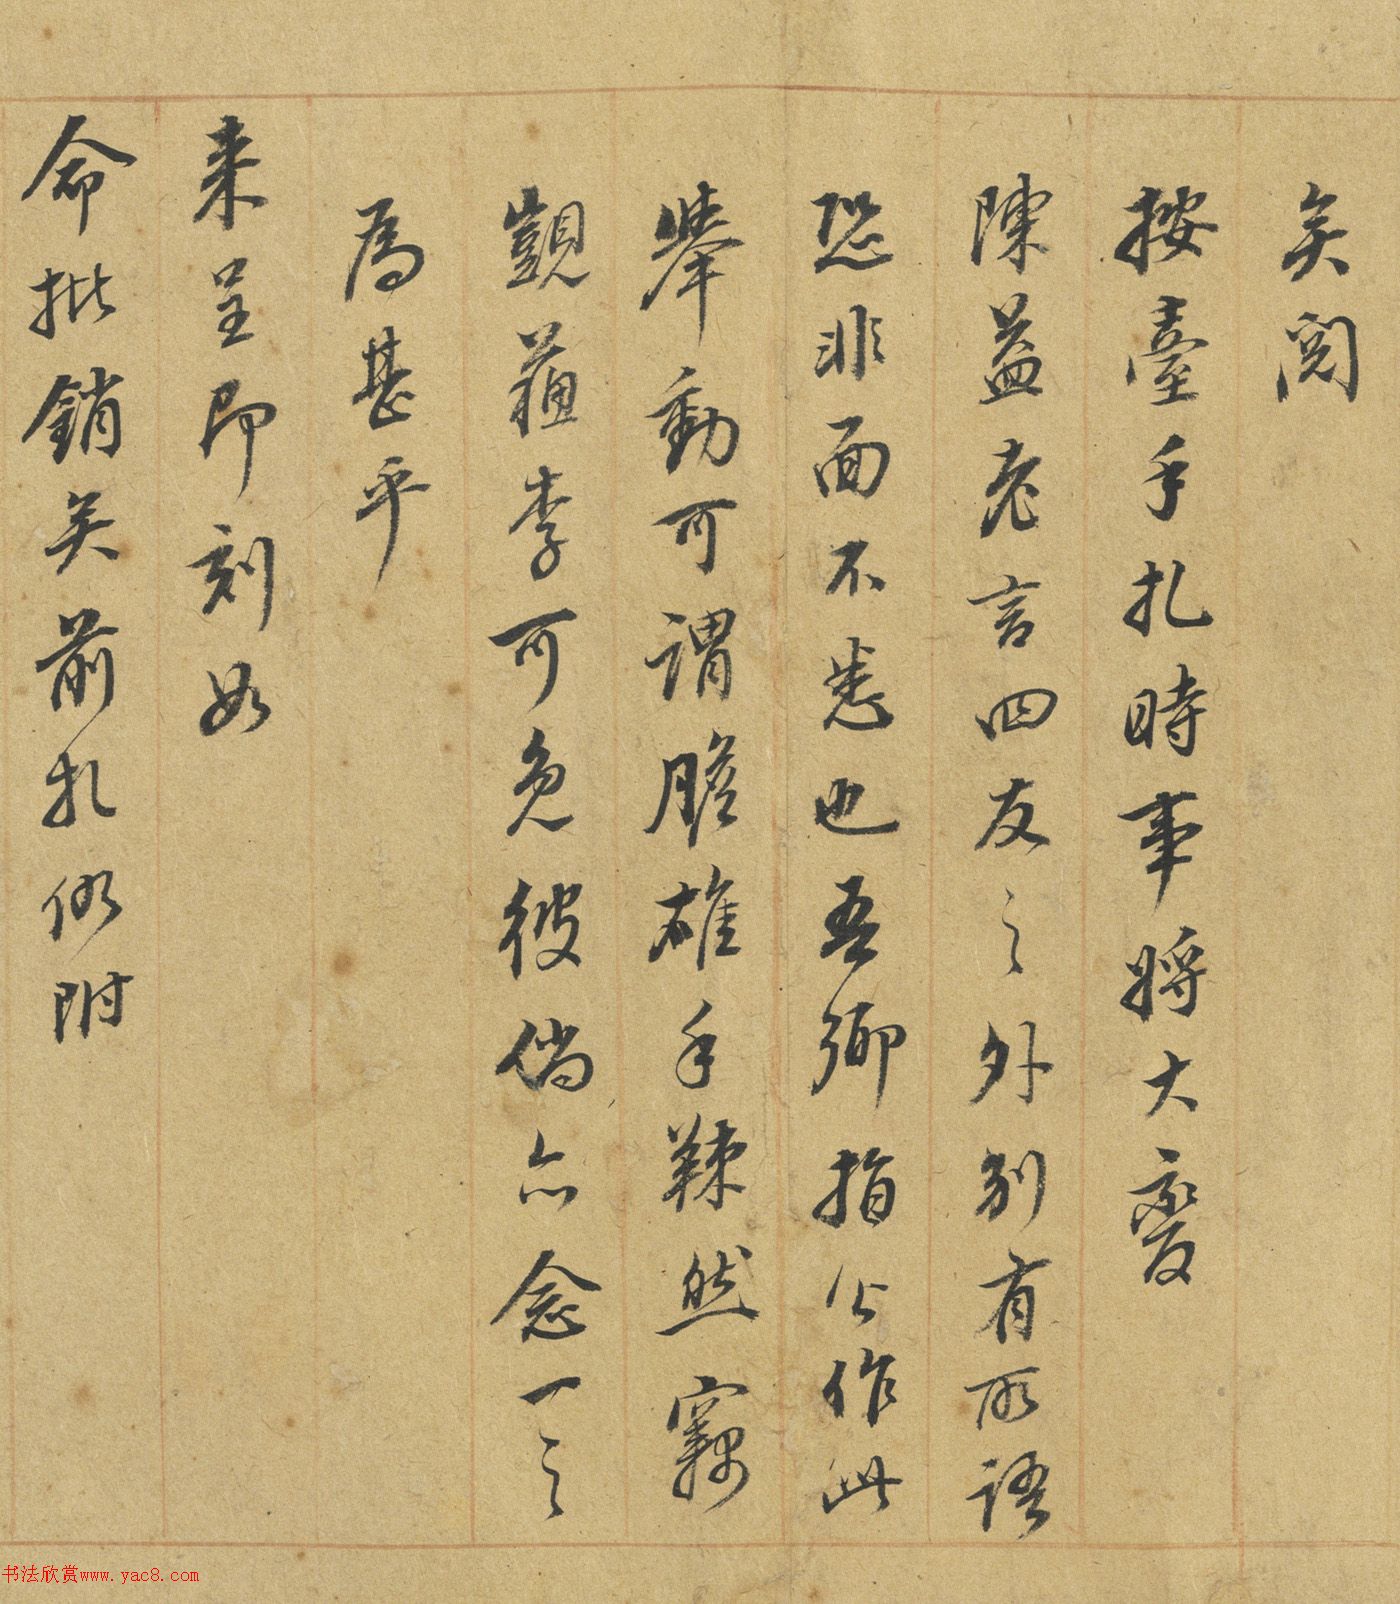 矣閱
按臺手扎時事將大變
陳益老言四友之外別有所語
恐非面不悉也吾鄉指公作此
舉動可謂膽雄手辣然竊
觀蘓李可免彼倘亦念一之
為甚乎
来呈即刻如
命批銷矣前扎仍附
书法欣赏www.yac8.com